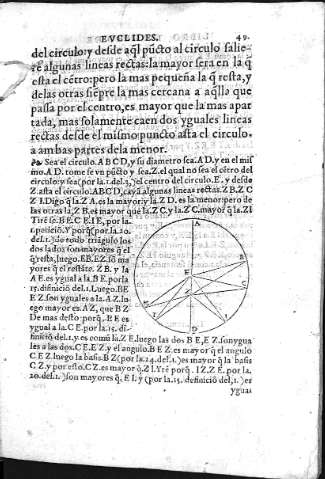 EVCLIDES. 49.
del circulo: y desde aq̃l pũcto al circulo salie-
rẽ algunas lineas rectas: la mayor sera en la q̃
esta el cẽtro: pero la mas pequeña la q̃ resta, y
delas otras siẽpre la mas cercana a aq̃lla que
passa por el centro, es mayor que la mas apar
tada, mas solamente caen dos yguales lineas
rectas desde el mismo puncto asta el circulo.
a ambas partes dela menor.
Sea el circulo. A B C D, y su diametro sea. A D. y en el mis
mo. A D. tome se vn pũcto y sea. Z. el qual no sea el cẽtro del
circulo: y sea (por la. 1. del. 3.) el centro del circulo. E. y desde
Z. asta el circulo. A B C D, cayã algunas lineas rectas. Z B, Z C
Z I. Digo q̃ la. Z A. es la mayor: y la. Z D. es la menor: pero de
las otras la. Z B. es mayor que la. Z C. y la. Z C. mayor q̃ la. ZI
Tirẽ se. B E. C E. I E, por la.
1. peticiõ. Y porq̃ (por la. 20.
del. 1.) de todo triãgulo los
dos lados son mayores q̃ el
q̃ resta, luego. E B. E Z. sõ ma
yores q̃ el restãte. Z B. y la
A E. es ygual a la. B E. por la
15. difinició del. 1. Luego. BE
E Z. son yguales a la. A Z. lu
ego mayor es. A Z, que B Z
De mas desto porq̃. B E es
ygual a la. C E. por la. 15. di-
finiciõ del. 1. y es comũ la. Z E. luego las dos B E, E Z. son ygua
les a las dos. C E. E Z. y el angulo. B E Z. es mayor q̃ el angulo
C E Z. luego la basis. B Z (por la. 24. del. 1.) es mayor q̃ la basis
C Z. y por esto. C Z. es mayor q̃. Z I. Y tẽ porq̃. I Z. Z E. por la.
20. del. 1. ) son mayores q̃. E I. y (por la. 15. definició del. 1. ) es
ygual
A
B
C
E
Z
I
D